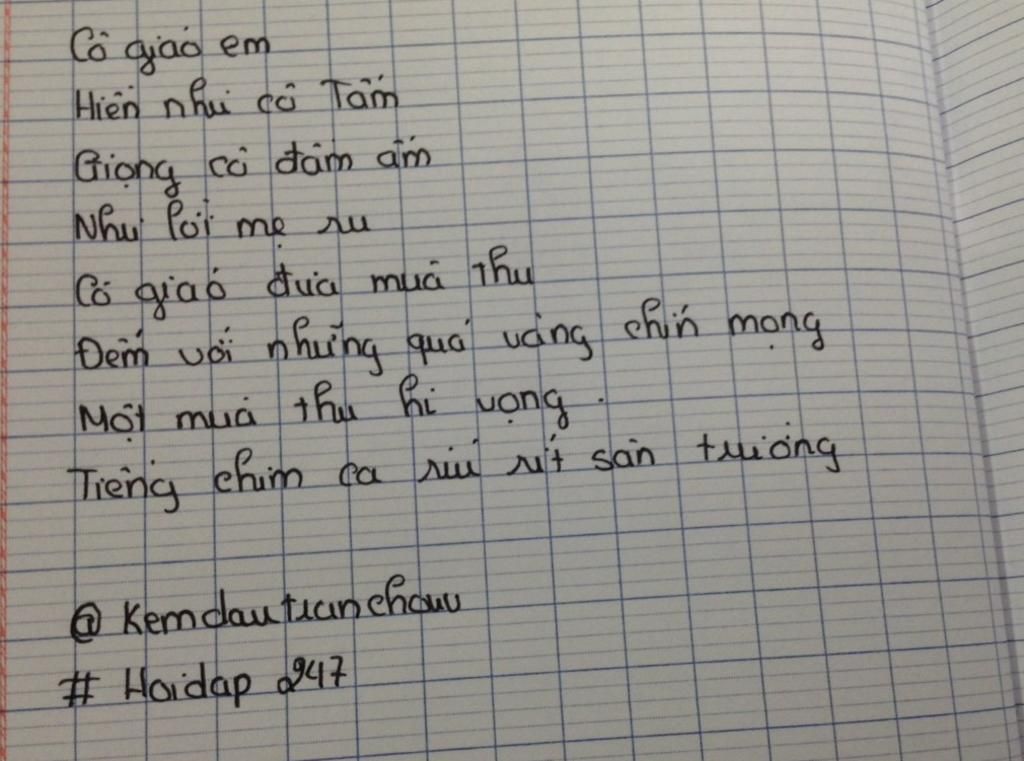 Cô giáo em
Hiền như cô Tấm
Giọng cô đầm ấm
Như lời mẹ ru
Cô giáo đưa mùa thu
Đến với những quả vàng chín mọng
Một mùa thu hi vọng.
Tiếng chim ca ríu rít sân trường
@ Kemdautranchauu
# Hoidap 247